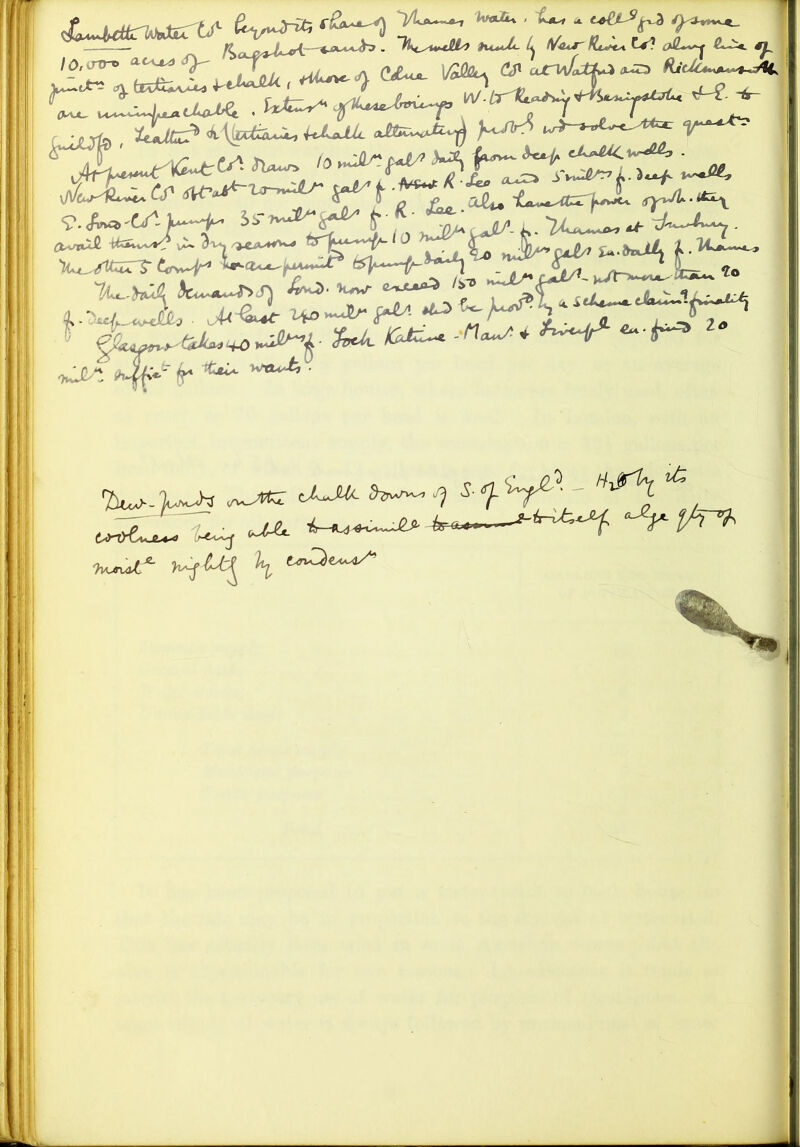 Lambeth Water Co. beyond its share of Thames Water . has a coll.g g.d of some
10,000 acres of Bagshot sands. The wells sunk by New River Co. along line of
junct.n of tertiaries & chalk, those of Colne Valley Co. at Watford and Rickmansworth
are unimpeachable . Extens.n of these borings W. to Reading & Basingstoke & S. to
Guildf.d , Leath.d & (tertiaries & chalk alternating) prob.y w.d solve the quest.n
At present Kent Co. draws 10 mill.n gals daily from deep chalk wells .
New River Co. at least 20 mill.n gals f. New R. Lee and 5 mill.ns f. deep wells
E. Lond. Co. pumps 35 mill.n gals f. R. Lee. Also have the power of wh. they
avail thems. in dry seasons to pump 10 mill.n gals. f. Thames at Sunbury .
The other 5 Comps are permitt.d to pump daily 20 mill.n gals ea. daily f. Thames
The daily demands of Lond. now exceed 150 mill.n gals. not more than 20
f. deep wells . At least 240 mill.n gals. sh.d be prov.d by a scheme claim.g finality
Glasgow takes 40 mill.ns f. Loch Katrine - Manr. & Liverp.l ea. find 20
mill.n suffict for their wants .
Dew-ponds on the chalk downs of S. of Engl.d _ H by its
coolness being able to assimil.e to itself a lge qty of
moist.e nightly by condens.n